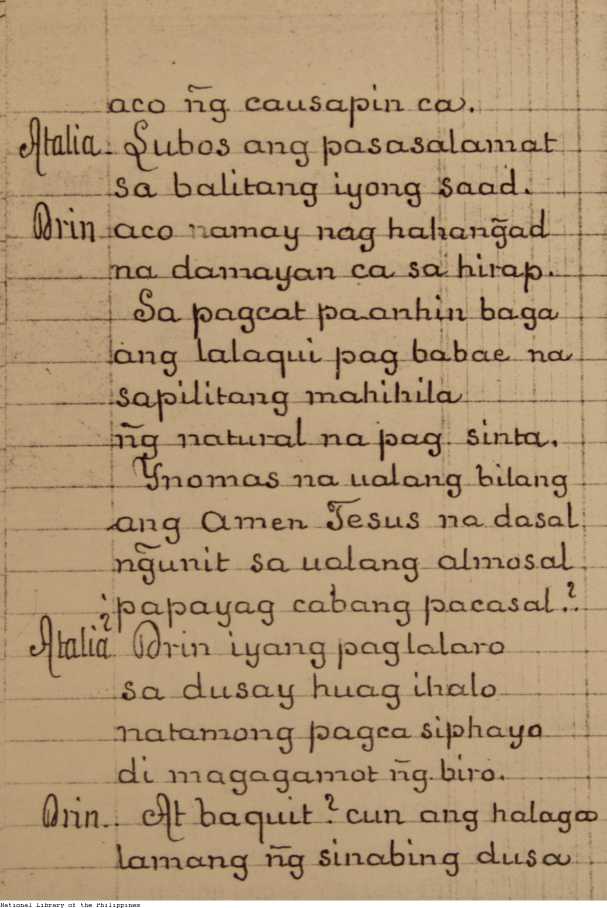 aco n͠g causapin ca.
Atalia. Lubos ang pasasalamat
sa balitang iyong saad.
Orin aco namay nag hahang̃ad
na damayan ca sa hirap.
Sa pagcat pa anhin baga
ang lalaqui pag babae na
sapilitang mahihila
n͠g natural na pag sinta.
Ynomas na ualang bilang
ang Amen Jesus na dasal
ng̃unit sa ualang almosal
¿papayag cabang pacasal.?
Atalia Orin iyang paglalaro
sa dusay huag ihalo
natamong pagca siphayo
di magagamot n͠g biro.
Orin.. At baquit? cun ang halaga
lamang n͠g sinabing dusa
National Library of the Philippines